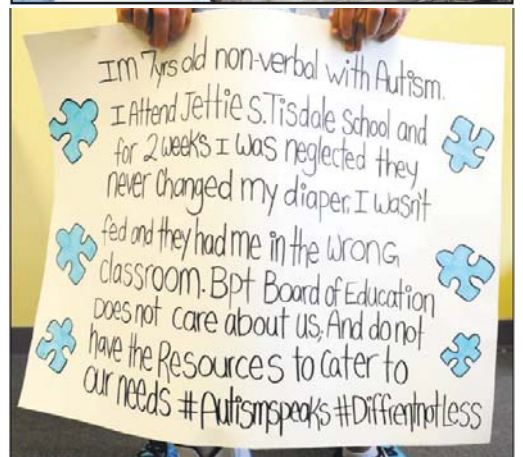 Im 7yrs old non-verbal with Autism.
I Attend Jettie S.Tisdale School and
for 2 weeks I was neglected they
never Changed my diaper, I wasn't
fed and they had me in the wrong
classroom. Bpt Board of Education
Does not care about us, And do not
have the Resources to Cater to
our needs #Autismspeaks #DiffrentnotLess